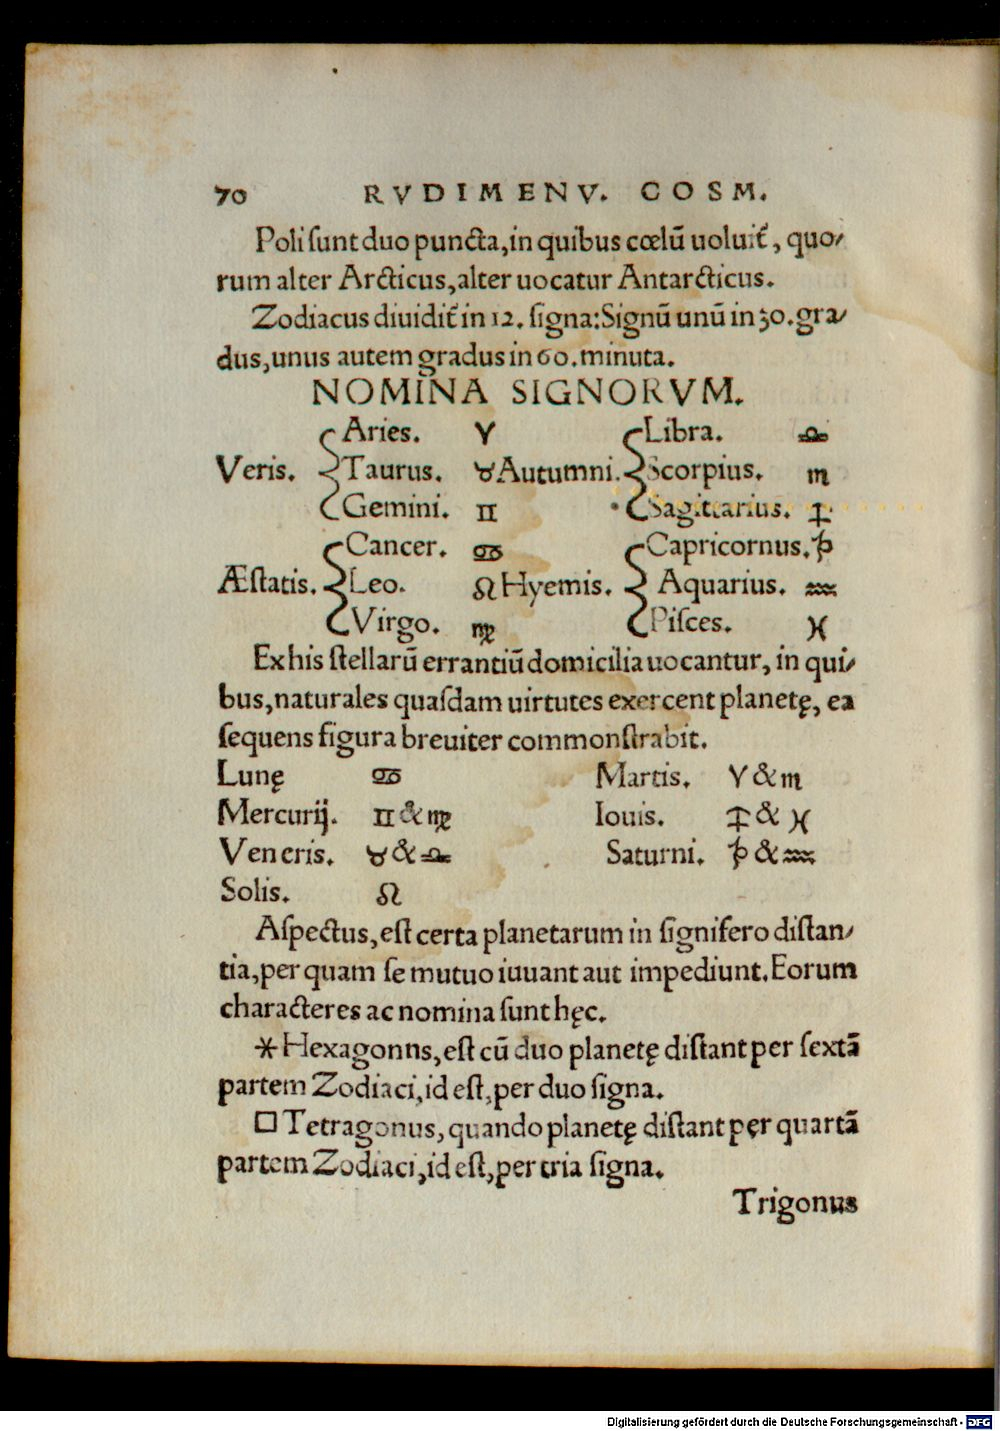 70 RVDIMENV. COSM.
Poli ſunt duo puncta, in quibus cœlū uoluit᷑, quo⸗
rum alter Arcticus, alter uocatur Antarcticus.
Zodiacus diuidit᷑ in 12. ſigna: Signū unū in 30. gra⸗
dus, unus autem gradus in 60. minuta.
NOMINA SIGNORVM.
Aries. ♈ Libra. ♎
Veris. Taurus. ♉ Autumni. Scorpius. ♏
Gemini. ♊ Sagittarius. ♐
Cancer. ♋ Capricornus. ♑
Æſtatis. Leo. ♌ Hyemis. Aquarius. ♒
Virgo. ♍ Piſces. ♓
Ex his ſtellarū errantiū domicilia uocantur, in qui⸗
bus, naturales quaſdam uirtutes exercent planetę, ea
ſequens figura breuiter commonſtrabit.
Lunę ♋ Martis. ♈ & ♏
Mercurij. ♊ & ♍ Iouis. ♐ & ♓
Veneris. ♉ & ♎ Saturni. ♑ & ♒
Solis. ♌
Aſpectus, eſt certa planetarum in ſignifero diſtan⸗
tia, per quam ſe mutuo iuuant aut impediunt. Eorum
characteres ac nomina ſunt hęc.
⚹ Hexagonns, eſt cū duo planetę diſtant per ſextā
partem Zodiaci, id eſt, per duo ſigna.
□ Tetragonus, quando planetę diſtant pęr quartā
partem Zodiaci, id eſt, per tria ſigna.
Trigonus
Digitalisierung gefördert durch die Deutsche Forschungsgemeinschaft - DFG